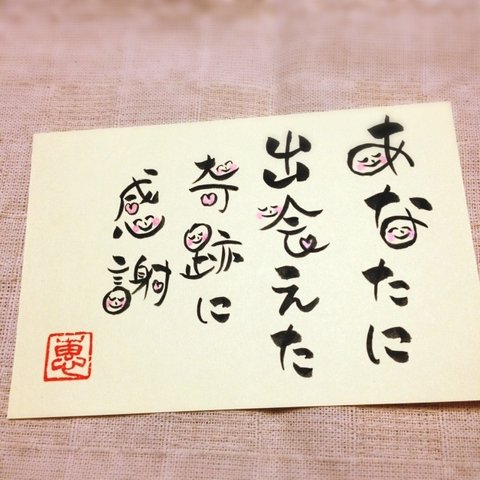 あなたに
出会えた
奇跡に
感謝
恵